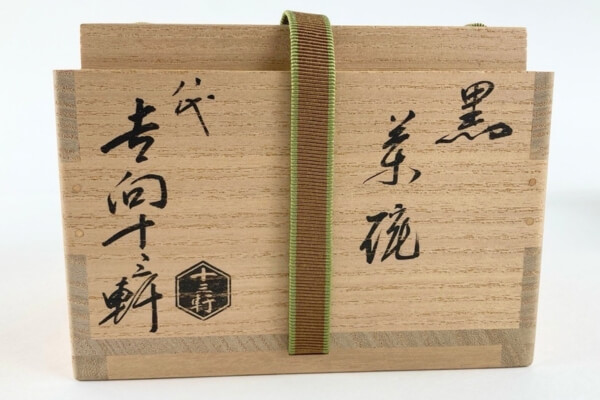 黒
茶碗
代
吉向十三軒
十三軒